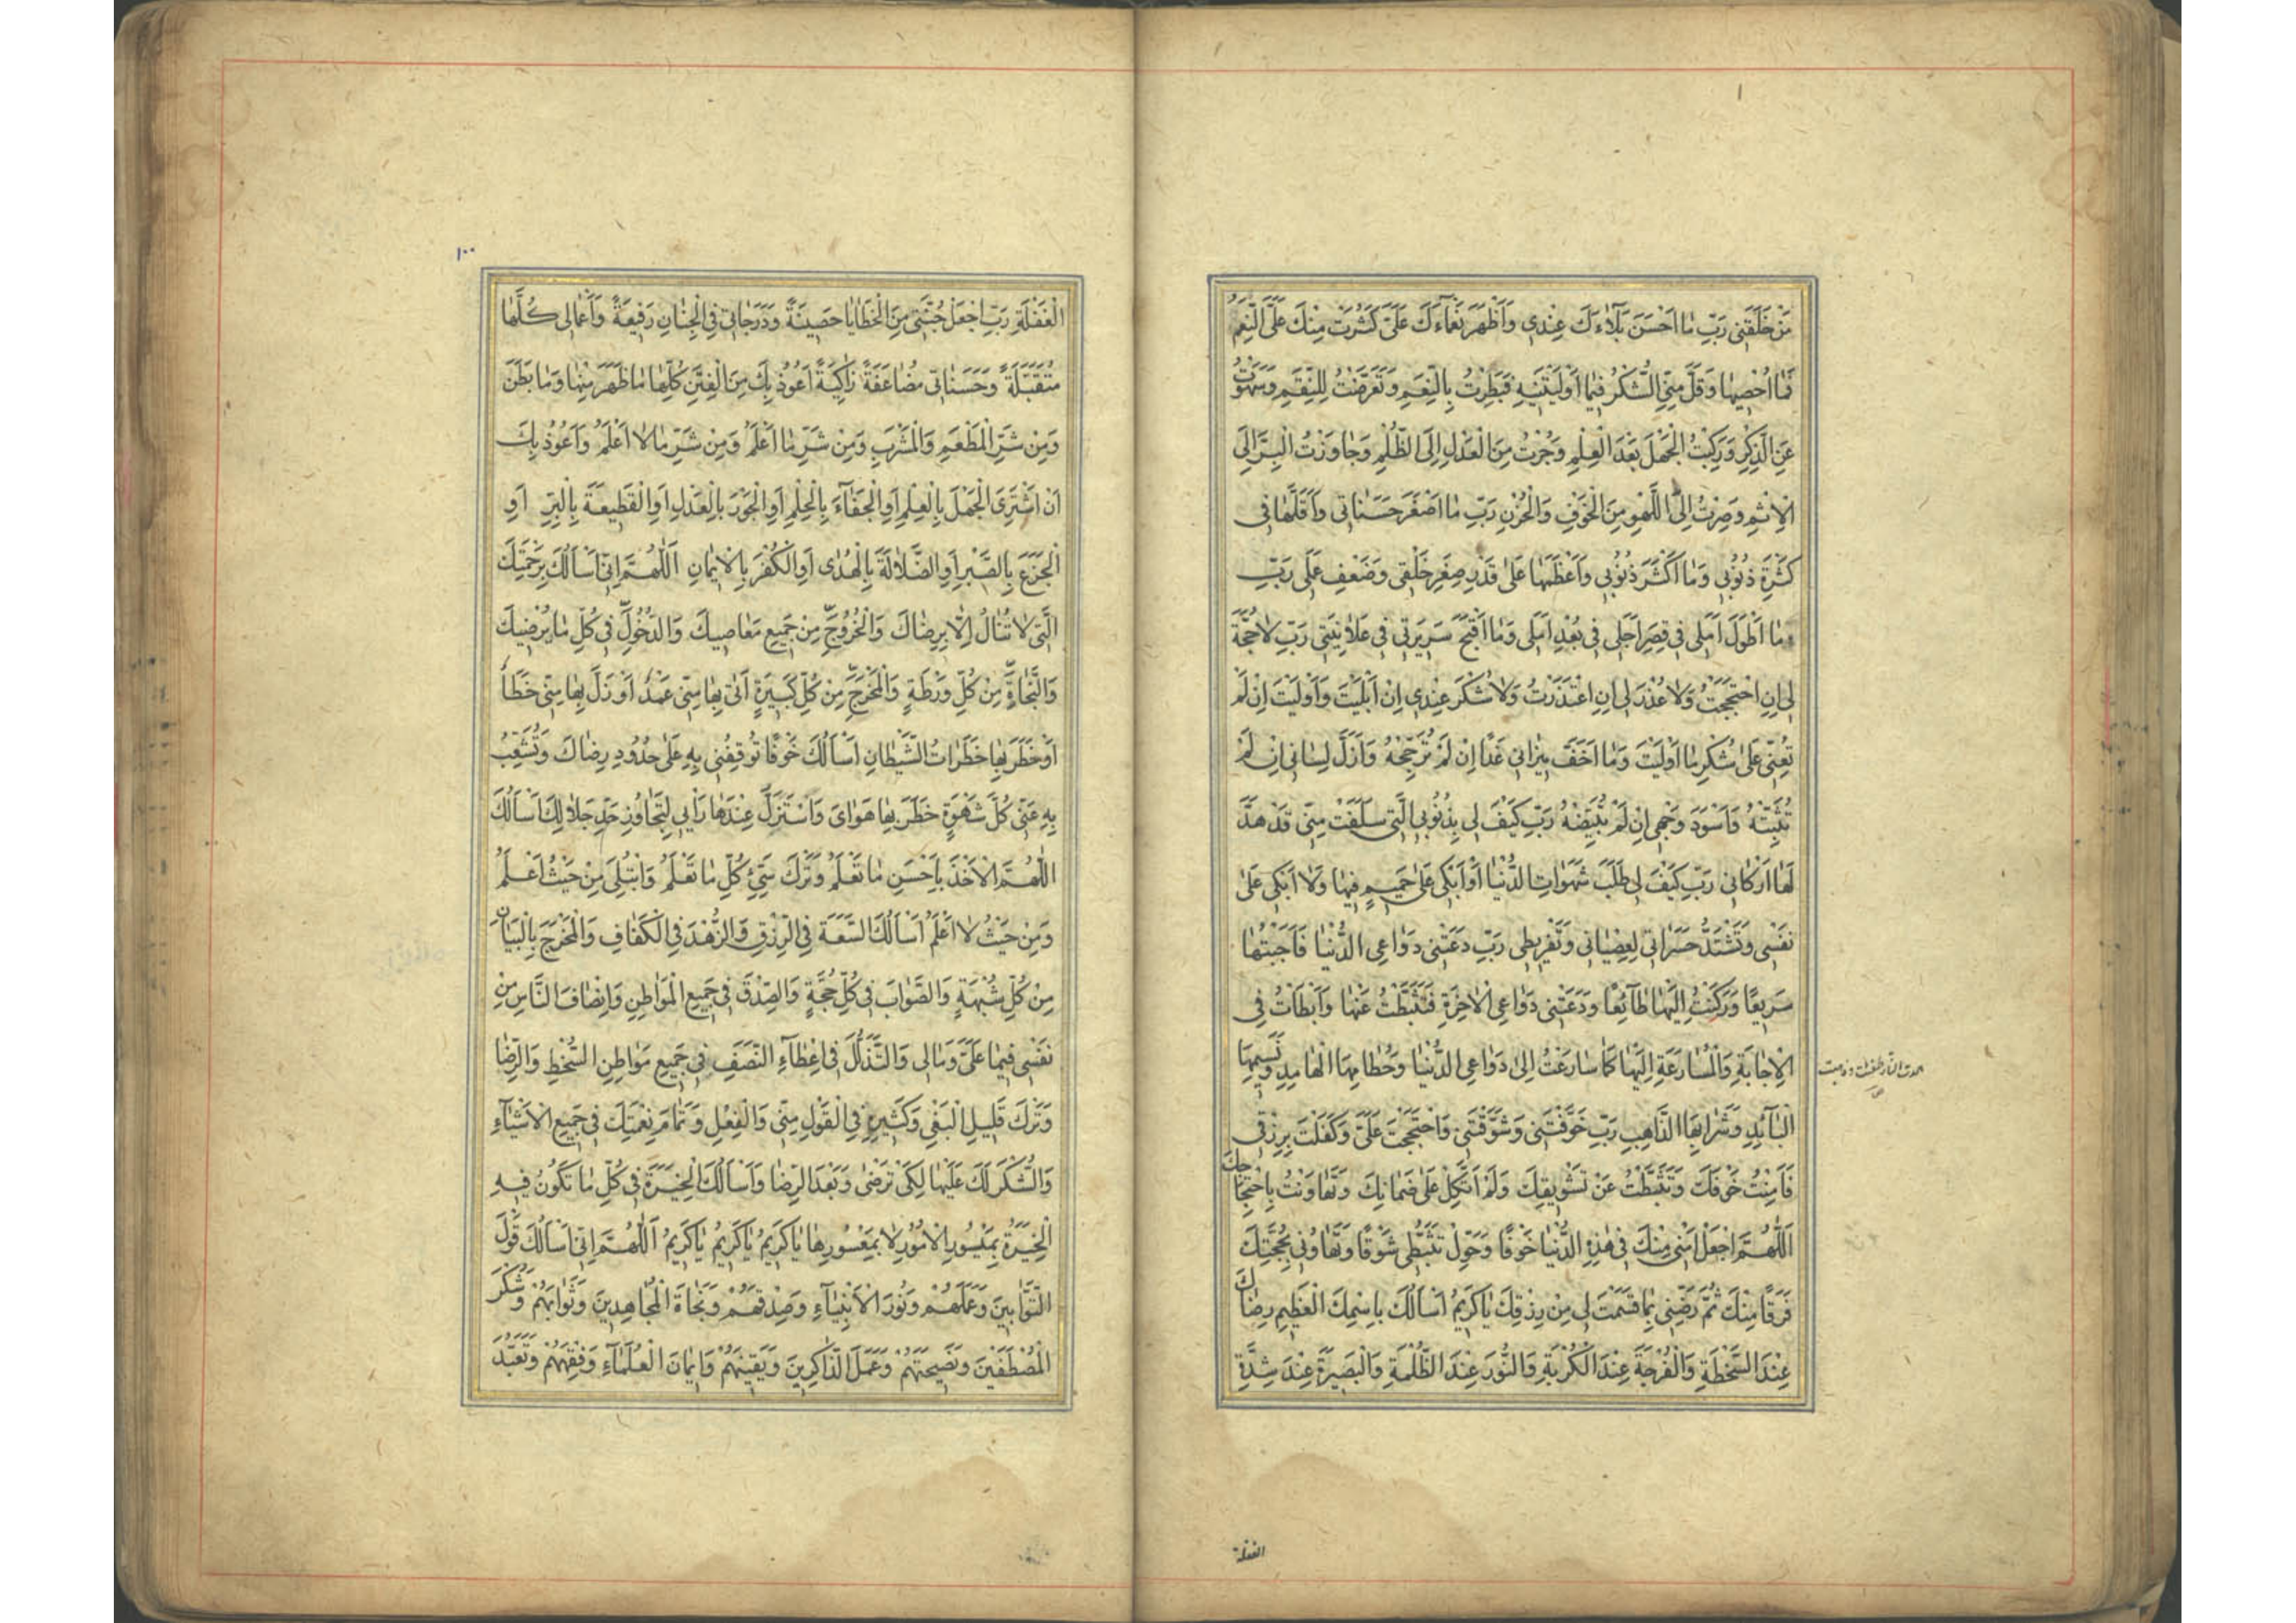 مَنْ خَلَقَنِى رَبِّ مٰا اَحْسَنَ بَلٰآءَكَ عِنْدِى وَاَظْهَرَ نَعْمٰآءَكَ عَلَىَّ كَثُرَتْ مِنْكَ عَلَىَّ النِّعَمُ
فَمٰا اُحْصِيهٰا وَقَلَّ مِنِّىَ الشُّكْرُ فيمٰا اَوْلَيْتَنيهِ فَبَطِرْتُ بِالنِّعَمِ وَتَعَرَّضْتُ لِلنِّقَمِ وَسَهَوْتُ
عَنِ الذِّكْرِ وَرَكِبْتُ الْجَهْلَ بَعْدَ الْعِلْمِ وَجُزْتُ مِنَ الْعَدْلِ اِلَى الظُّلْمِ وَجٰاوَزْتُ الْبِرَّ اِلَى
الْاِثْمِ وَصِرْتُ اِلَى اللَّهْوِ مِنَ الْخَوْفِ وَالْحُزْنِ رَبِّ مٰا اَصْغَرَ حَسَنٰاتى وَاَقَلَّهٰا فى
كَثْرَةِ ذُنُوبى وَمٰا اَكْثَرَ ذُنُوبى وَاَعْظَمَهٰا عَلىٰ قَدْرِ صِغَرِ خَلْقى وَضَعْفِ عَمَلى رَبِّ
مٰا اَطْوَلَ اَمَلى فى قِصَرِ اَجَلى فى بُعْدِ اَمَلى وَمٰا اَقْبَحَ سَريرَتى فى عَلٰانِيَتى رَبِّ لٰاحُجَّةَ
لى اِنِ احْتَجَجْتُ وَلٰا عُذْرَ لى اِنِ اعْتَذَرْتُ وَلٰا شُكْرَ عِنْدى اِنْ اَبْلَيْتَ وَاَوْلَيْتَ اِنْ لَمْ
تُعِنّى عَلىٰ شُكْرِ مٰا اَوْلَيْتَ وَمٰا اَخَفَّ ميزٰانى غَدًا اِنْ لَمْ تُرَجِّحْهُ وَاَزَلَّ لِسٰانى اِنْ لَمْ
تُثَبِّتْهُ وَاَسْوَدَ وَجْهى اِنْ لَمْ تُبَيِّضْهُ رَبِّ كَيْفَ لى بِذُنُوبِىَ الَّتى سَلَفَتْ مِنّى قَدْ هَدَّ
لَهٰا اَرْكٰانى رَبِّ كَيْفَ لى طَلَبُ شَهَوٰاتِ الدُّنْيٰا اَوْ اَبْكى عَلىٰ حَميمٍ فيهٰا وَلٰا اَبْكى عَلىٰ
نَفْسى وَتَشْتَدُّ حَسَرٰاتى لِعِصْيٰانى وَتَفْريطى رَبِّ دَعَتْنى دَوٰاعِى الدُّنْيٰا فَاَجَبْتُهٰا
سَريعًا وَرَكَنْتُ اِلَيْهٰا طٰآئِعًا وَدَعَتْنى دَوٰاعِى الْاٰخِرَةِ فَتَثَبَّطْتُ عَنْهٰا وَاَبْطَأْتُ فِى
الْاِجٰابَةِ وَالْمُسٰارَعَةِ اِلَيْهٰا كَمٰا سٰارَعْتُ اِلىٰ دَوٰاعِى الدُّنْيٰا وَحُطٰامِهَا الْهٰامِدِ وَنَسيمِهَا
الْبٰآئِدِ وَشَرٰابِهَا الذّٰاهِبِ رَبِّ خَوَّفْتَنى وَشَوَّقْتَنى وَاحْتَجَجْتَ عَلَىَّ وَكَفَلْتَ بِرِزْقى
فَاَمِنْتُ خَوْفَكَ وَتَثَبَّطْتُ عَنْ تَشْويقِكَ وَلَمْ اَتَّكِلْ عَلىٰ ضَمٰانِكَ وَتَهٰاوَنْتُ بِاحْتِجٰاجِكَ
اَللّٰهُمَّ اجْعَلْ اَمْنى مِنْكَ فى هٰذِهِ الدُّنْيٰا خَوْفًا وَحَوِّلْ تَثَبُّطى شَوْقًا وَتَهٰاوُنى بِحُجَّتِكَ
فَرَقًا مِنْكَ ثُمَّ رَضِّنى بِمٰا قَسَمْتَ لى مِنْ رِزْقِكَ يٰا كَريمُ اَسْاَلُكَ بِاسْمِكَ الْعَظيمِ رِضٰاكَ
عِنْدَ السَّخْطَةِ وَالْفُرْجَةَ عِنْدَ الْكُرْبَةِ وَالنُّورَ عِنْدَ الظُّلْمَةِ وَالْبَصيرَةَ عِنْدَ شِدَّةِ
الغفلة
١٠٠
الْغَفْلَةِ رَبِّ اجْعَلْ جُنَّتى مِنَ الْخَطٰايٰا حَصينَةً وَدَرَجٰاتى فِى الْجِنٰانِ رَفيعَةً وَاَعْمٰالى كُلَّهٰا
مُتَقَبَّلَةً وَحَسَنٰاتى مُضٰاعَفَةً زٰاكِيَةً اَعُوذُ بِكَ مِنَ الْفِتَنِ كُلِّهٰا مٰا ظَهَرَ مِنْهٰا وَمٰا بَطَنَ
وَمِنْ شَرِّ الْمَطْعَمِ وَالْمَشْرَبِ وَمِنْ شَرِّ مٰا اَعْلَمُ وَمِنْ شَرِّ مٰا لٰا اَعْلَمُ وَاَعُوذُ بِكَ
اَنْ اَشْتَرِىَ الْجَهْلَ بِالْعِلْمِ اَوِ الْجَفٰآءَ بِالْحِلْمِ اَوِ الْجَوْرَ بِالْعَدْلِ اَوِ الْقَطيعَةَ بِالْبِرِّ اَوِ
الْجَزَعَ بِالصَّبْرِ اَوِ الضَّلٰالَةَ بِالْهُدٰى اَوِ الْكُفْرَ بِالْايمٰانِ اَللّٰهُمَّ اِنّى اَسْاَلُكَ بِرَحْمَتِكَ
الَّتى لٰا تُنٰالُ اِلّٰا بِرِضٰاكَ وَالْخُرُوجَ مِنْ جَميعِ مَعٰاصيكَ وَالدُّخُولَ فى كُلِّ مٰا يُرْضيكَ
وَالنَّجٰاةَ مِنْ كُلِّ وَرْطَةٍ وَالْمَخْرَجَ مِنْ كُلِّ كَبيرَةٍ اَتٰى بِهٰا مِنّى عَمْدٌ اَوْ زَلَّ بِهٰا مِنّى خَطَأٌ
اَوْ خَطَرَ بِهٰا خَطَرٰاتُ الشَّيْطٰانِ اَسْاَلُكَ خَوْفًا تُوقِفُنى بِهِ عَلىٰ حُدُودِ رِضٰاكَ وَتُشَعِّبُ
بِهِ عَنّى كُلَّ شَهْوَةٍ خَطَرَ بِهٰا هَوٰاىَ وَاسْتَزَلَّ عِنْدَهٰا رَأْيى لِتَجٰاوُزِ حَدِّ حَلٰالِكَ اَسْاَلُكَ
اللّٰهُمَّ الْاَخْذَ بِاَحْسَنِ مٰا تَعْلَمُ وَتَرْكَ سَيِّئِ كُلِّ مٰا تَعْلَمُ وَابْتُلى مِنْ حَيْثُ اَعْلَمُ
وَمِنْ حَيْثُ لٰا اَعْلَمُ اَسْاَلُكَ السَّعَةَ فِى الرِّزْقِ وَالزُّهْدَ فِى الْكَفٰافِ وَالْمَخْرَجَ بِالْبَيٰانِ
مِنْ كُلِّ شُبْهَةٍ وَالصَّوٰابَ فى كُلِّ حُجَّةٍ وَالصِّدْقَ فى جَميعِ الْمَوٰاطِنِ وَاِنْصٰافَ النّٰاسِ مِنْ
نَفْسى فيمٰا عَلَىَّ وَمٰا لى وَالتَّذَلُّلَ فى اِعْطٰآءِ النَّصَفِ فى جَميعِ مَوٰاطِنِ السُّخْطِ وَالرِّضٰا
وَتَرْكَ قَليلِ الْبَغْىِ وَكَثيرِهِ فِى الْقَوْلِ مِنّى وَالْفِعْلِ وَتَمٰامَ نِعْمَتِكَ فى جَميعِ الْاَشْيٰآءِ
وَالشُّكْرَ لَكَ عَلَيْهٰا لِكَىْ تَرْضٰى وَبَعْدَ الرِّضٰا وَاَسْاَلُكَ الْخِيَرَةَ فى كُلِّ مٰا تَكُونُ فيهِ
الْخِيَرَةُ بِمَيْسُورِ الْاُمُورِ لٰا بِمَعْسُورِهٰا يٰا كَريمُ يٰا كَريمُ يٰا كَريمُ اَللّٰهُمَّ اِنّى اَسْاَلُكَ قَوْلَ
التَّوّٰابينَ وَعَمَلَهُمْ وَنُورَ الْاَنْبِيٰآءِ وَصِدْقَهُمْ وَنَجٰاةَ الْمُجٰاهِدينَ وَثَوٰابَهُمْ وَشُكْرَ
الْمُصْطَفَيْنَ وَنَصيحَتَهُمْ وَعَمَلَ الذّٰاكِرينَ وَيَقينَهُمْ وَايمٰانَ الْعُلَمٰآءِ وَفِقْهَهُمْ وَتَعَبُّدَ